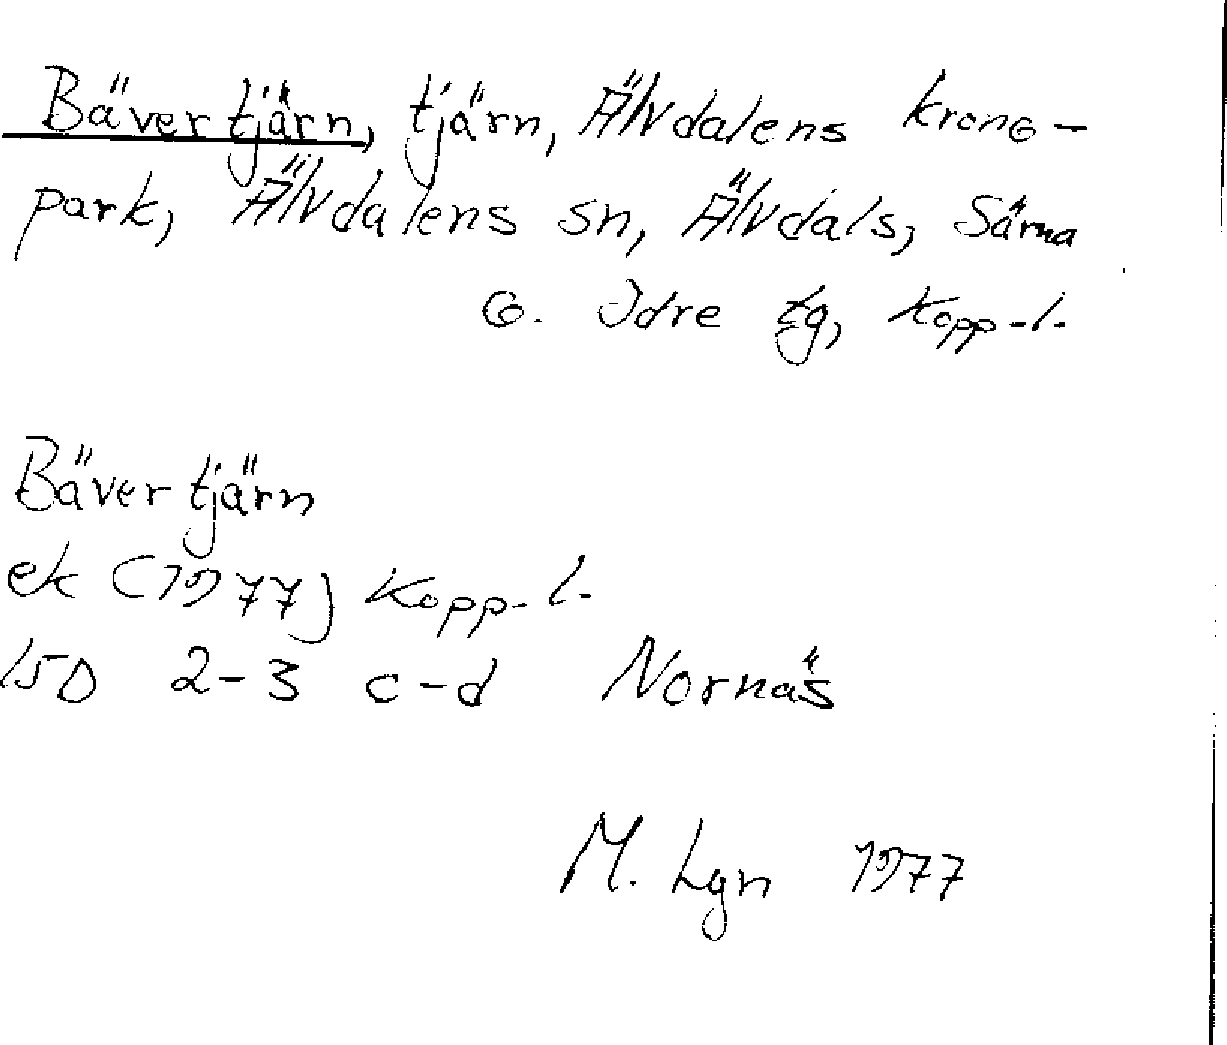 Bävertjärn, tjärn, Älvdalens krono-
park, Älvdalens sn, Älvdals, Särna
o. Idre tg, Kopp-l.
Bävertjärn
ek (1977) Kopp-l.
15D 2-3 c-d Nornäs
M. Lgn 1977